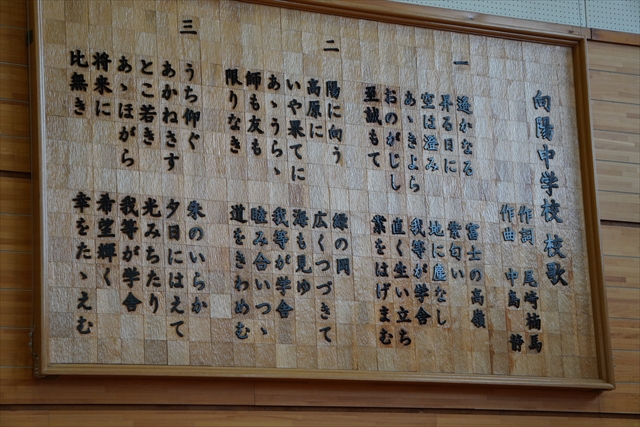 向陽中学校 校歌
作詞 尾崎楠馬
作曲 中島 静
一
遥かなる 富士の高嶺
昇る日に 紫匂い
空は澄み 地に塵なし
あゝきよら 我等が学舎
おのがじし 直く生い立ち
至誠もて 業をはげまむ
二
陽に向う 緑の岡
高原に 広くつづきて
いや果てに 海も見ゆ
あゝうらゝ 我等が学舎
師も友も 睦み合いつゝ
限りなき 道をきわめむ
三
うち仰ぐ 朱のいらか
あかねさす 夕日にはえて
とこ若き 光みちたり
あゝほがら 我等が学舎
将来に 希望輝く
比無き 幸をたゝえむ